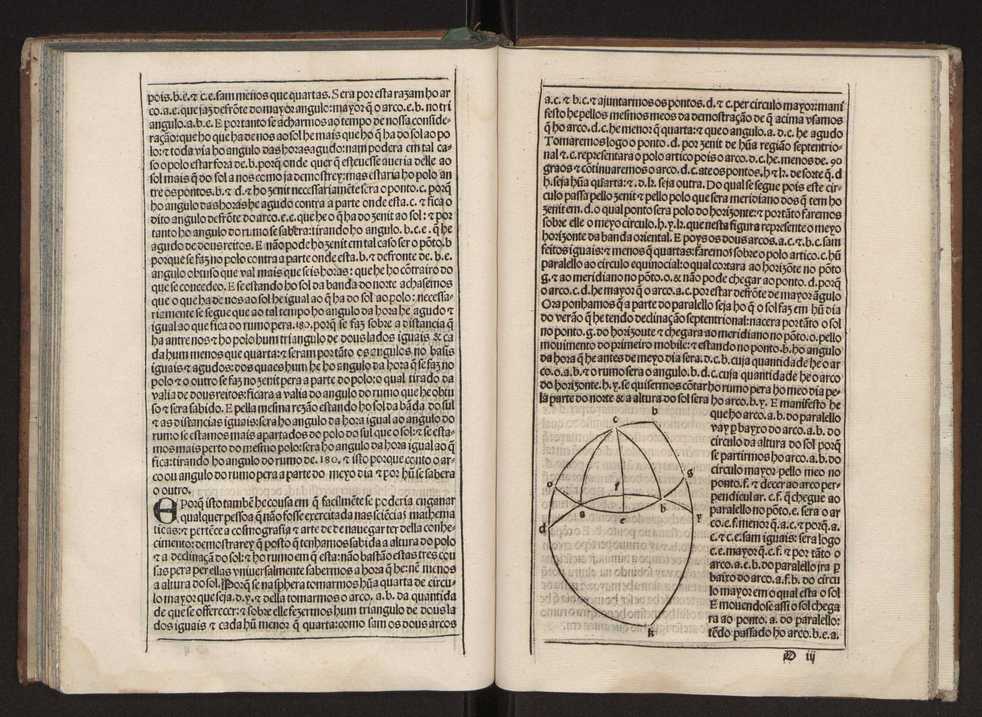 pois.b.e.⁊ c.e.sam menos que quartas. Sera por esta razam ho ar
co.a.e.que jaz defrõte do mayor angulo:mayor q̃ o arco.e.b. no tri
angulo.a.b.e. E portanto se acharmos ao tempo de nossa conside-
ração:que ho que ha de nos ao sol he mais que ho q̃ ha do sol ao po
lo:⁊ toda via ho angulo das horas agudo:nam podera em tal ca-
so o polo estar fora de.b.porq̃ onde quer q̃ esteuesse aueria delle ao
sol mais q̃ do sol a nos como ja demostrey:mas estaria ho polo an
tre os pontos.b. ⁊ d.⁊ ho zenit necessariamẽte sera o ponto.c. porq̃
ho angulo das horas he agudo contra a parte onde esta.c. ⁊ fica o
dito angulo defrõte do arco.e.c.que he o q̃ ha do zenit ao sol : ⁊ por
tanto ho angulo do rumo se sabera:tirando ho angulo. b.c.e . q̃ he
agudo de dous reitos. E não pode ho zenit em tal caso ser o põto.b
porque se faz no polo contra a parte onde esta.b.⁊ defronte de. b.e.
angulo obtuso que val mais que seis horas : que he ho cõtrairo do
que se concedeo. E se estando ho sol da banda do norte achasemos
que o que ha de nos ao sol he igual ao q̃ ha do sol ao polo : necessa-
riamente se segue que ao tal tempo ho angulo da hora he agudo ⁊
igual ao que fica do rumo pera.180.porq̃ se faz sobre a distancia q̃
ha antre nos ⁊ ho polo hum triangulo de dous lados iguais & ca
da hum menos que quarta:⁊ seram portãto os angulos no basis
iguais ⁊ agudos:dos quaes hum he ho angulo da hora q̃ se faz no
polo ⁊ o outro se faz no zenit pera a parte do polo:o qual tirado da
valia de dous reitos:ficara a valia do angulo do rumo que he obtu
so ⁊ sera sabido. E pella mesma rezão estando ho sol da bãda do sul
⁊ as distancias iguais:sera ho angulo da hora igual ao angulo do
rumo se estamos mais apartados do polo do sul que o sol:⁊ se esta-
mos mais perto do mesmo polo:sera ho angulo da hora igual ao q̃
fica:tirando ho angulo do rumo de .180.⁊ isto porque conto o ar-
co ou angulo do rumo pera a parte do meyo dia ⁊ por hi se sabera
o outro.
E Porq̃ isto tambẽ he cousa em q̃ facilmẽte se poderia enganar
qualquer pessoa q̃ não fosse exercitada nas sciẽcias mathema
ticas:⁊ pertẽce a cosmografia ⁊ arte de de nauegar ter della conhe-
cimento:demostrarey q̃ posto q̃ tenhamos sabida a altura do polo
⁊ a declinaçã do sol:⁊ ho rumo em q̃ esta:não bastão estas tres cou
sas pera per ellas vniuersalmente sabermos a hora q̃ he:nẽ menos
a altura do sol. Porq̃ se na sphera tomarmos hũa quarta de circu-
lo mayor que seja.d.y.⁊ della tomarmos o arco. a.b. da quantida
de que se offerecer:⁊ sobre elle fezermos hum triangulo de dous la
dos iguais ⁊ cada hũ menor q̃ quarta:como sam os dous arcos
a.c.⁊ b.c.⁊ ajuntarmos os pontos.d.⁊ c.per circulo mayor:mani
festo he pellos mesmos meos da demostração de q̃ acima vsamos
q̃ ho arco.d.c.he menor q̃ quarta:⁊ que o angulo.a.d.c. he agudo
Tomaremos logo o ponto .d. por zenit de hũa região septentrio-
nal ⁊.c.representara o polo artico pois o arco.d.c.he.menos de. 90
graos ⁊ cõtinuaremos o arco.d.c.ate os pontos.h ⁊ k. de sorte q̃. d
h.seja hũa quarta:⁊ .d.k.seja outra. Do qual se segue pois este cir-
culo passa pello zenit ⁊ pello polo que sera meridiano dos q̃ tem ho
zenit em.d.o qual ponto sera polo do horizonte:⁊ portãto faremos
sobre elle o meyo circulo.h.y.k.que nesta figura represente o meyo
horizonte da banda oriental. E poys os dous arcos.a.c.⁊ b.c. sam
feitos iguais:⁊ menos q̃ quartas:faremos sobre o polo artico.c.hũ
paralello ao circulo equinocial:o qual cortara ao horizõte no põto
g.⁊ ao meridiano no põto.o.⁊ não pode chegar ao ponto.d.porq̃
o arco.c.d.he mayor q̃ o arco.a.c.por estar defrõte de mayor ãgulo
Ora ponhamos q̃ a parte do paralello seja ho q̃ o sol faz em hũ dia
do verão q̃ he tendo declinação septentrional:nacera portãto o sol
no ponto.g.do horizonte ⁊ chegara ao meridiano no põto.o.pello
mouimento do primeiro mobile:⁊ estando no ponto.b.ho angulo
da hora q̃ he antes de meyo dia sera.d.c.b. cuja quantidade he o ar
co.o.b.⁊ o rumo sera o angulo.b.d.c.cuja quantidade he o arco
do horizonte.h.y.se quisermos cõtar ho rumo pera ho meo dia pe-
la parte do norte & a altura do sol sera ho arco.b.y. E manifesto he
que ho arco.a.b.do paralello
vay p bayxo do arco.a.b. do
circulo da altura do sol porq̃
se partirmos ho arco.a.b.do
circulo mayor pello meo no
ponto.f.⁊ decer ao arco per-
pendicular.c.f.q̃ chegue ao
paralello no põto.e. sera o ar
co.e.f.menor q̃.a.c.⁊ porq̃.a.
c.⁊ c.e.sam iguais: sera logo
c.e.mayor q̃.c.f.⁊ por tãto o
arco.a.e.b.do paralello jra p
baixo do arco.a.f.b. do circu
lo mayor em o qual esta o sol
E mouendose assi o sol chega
ra ao ponto. a. do paralello:
tẽdo passado ho arco.b.e.a.
c
h
g
o
f
a
b
e
d
y
k
D iij